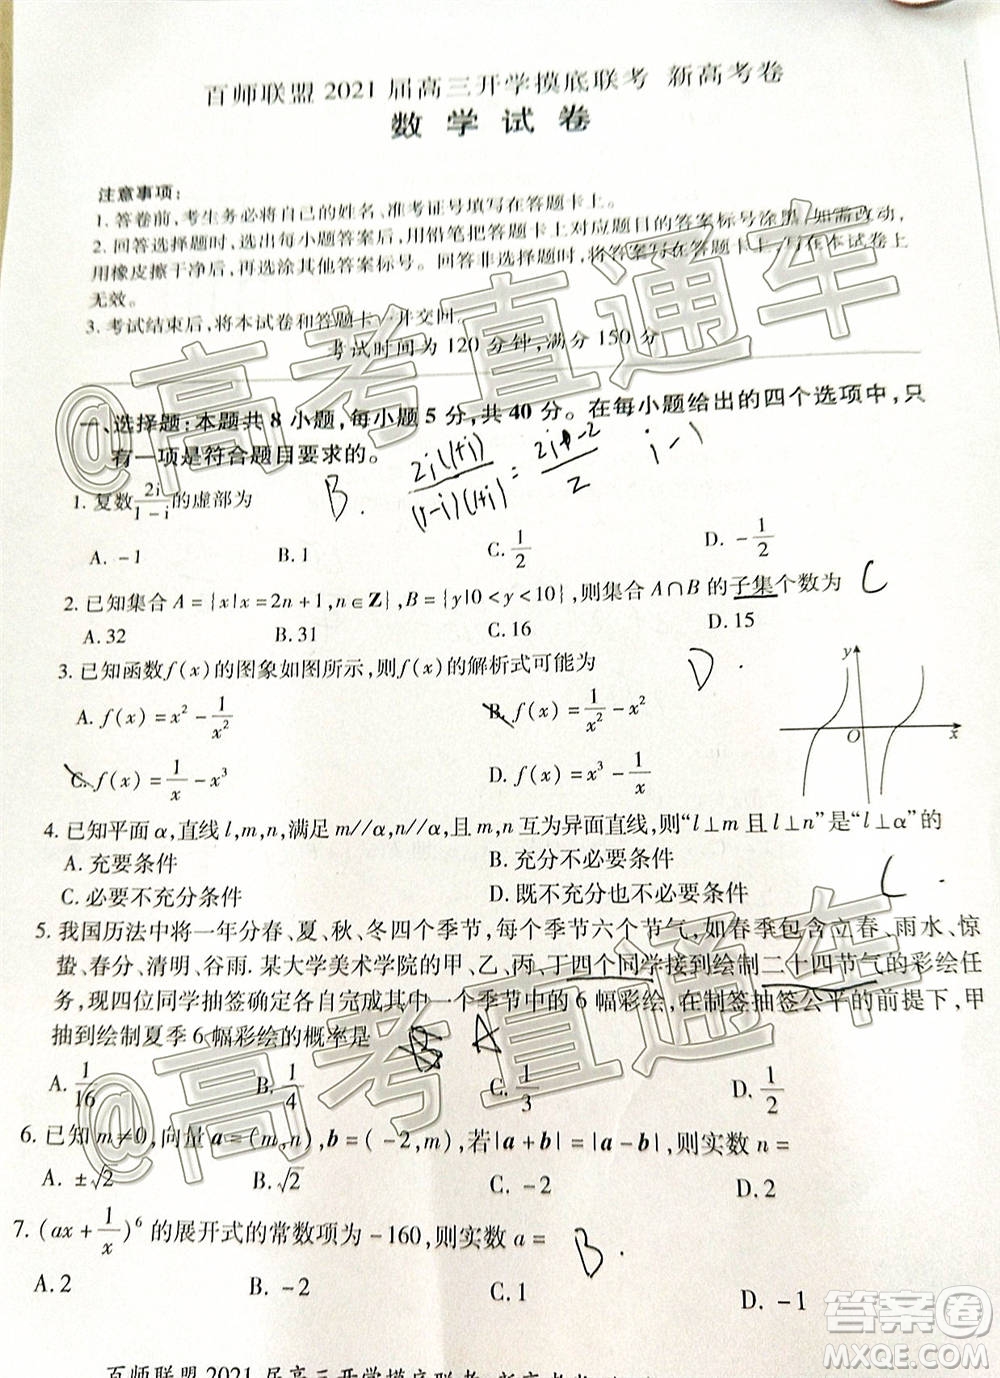 百师联盟2021届高三开学摸底联考 新高考卷
数学试卷
注意事项:
1. 答卷前,考生务必将自己的姓名、准考证号填写在答题卡上。
2. 回答选择题时,选出每小题答案后,用铅笔把答题卡上对应题目的答案标号涂黑,如需改动,
用橡皮擦干净后,再选涂其他答案标号。回答非选择题时,将答案写在答题卡上,写在本试卷上
无效。
3. 考试结束后,将本试卷和答题卡一并交回。
考试时间为120分钟,满分150分
一、选择题:本题共8小题,每小题5分,共40分。在每小题给出的四个选项中,只
有一项是符合题目要求的。
B. 2i(1+i)/(1-i)(1+i) = 2i+-2/2 i-1
1. 复数2i/(1-i)的虚部为
A. -1 B. 1 C. 1/2 D. -1/2
2. 已知集合A={x|x=2n+1,n∈Z},B={y|0<y<10},则集合A∩B的子集个数为 C
A. 32 B. 31 C. 16 D. 15
3. 已知函数f(x)的图象如图所示,则f(x)的解析式可能为 D.
A. f(x)=x²-1/x² B. f(x)=1/x²-x²
C. f(x)=1/x-x³ D. f(x)=x³-1/x
y
O
x
4. 已知平面α,直线l,m,n,满足m//α,n//α,且m,n互为异面直线,则“l⊥m且l⊥n”是“l⊥α”的
A. 充要条件 B. 充分不必要条件
C. 必要不充分条件 D. 既不充分也不必要条件 C.
5. 我国历法中将一年分春、夏、秋、冬四个季节,每个季节六个节气,如春季包含立春、雨水、惊
蛰、春分、清明、谷雨. 某大学美术学院的甲、乙、丙、丁四个同学接到绘制二十四节气的彩绘任
务,现四位同学抽签确定各自完成其中一个季节中的6幅彩绘,在制签抽签公平的前提下,甲
抽到绘制夏季6幅彩绘的概率是 B A
A. 1/16 B. 1/4 C. 1/3 D. 1/2
6. 已知m≠0,向量a=(m,n),b=(-2,m),若|a+b|=|a-b|,则实数n=
A. ±√2 B. √2 C. -2 D. 2
7. (ax+1/x)⁶的展开式的常数项为-160,则实数a= B.
A. 2 B. -2 C. 1 D. -1
@高考直通车
@高考直通车
答案圈
MXQE.COM